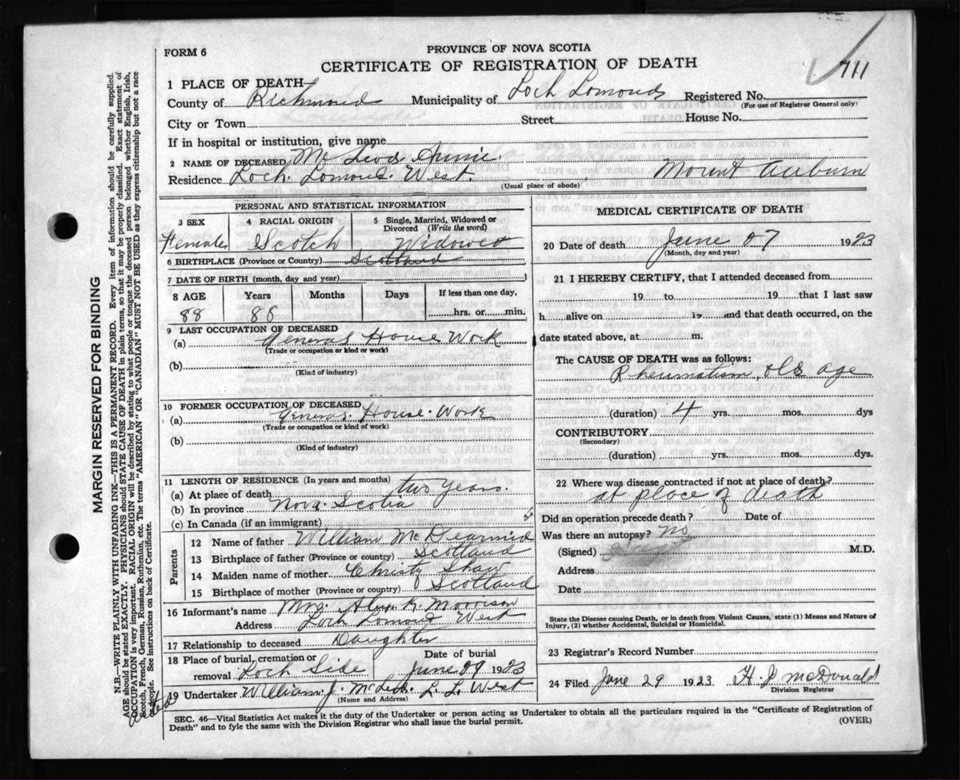 FORM 6
PROVINCE OF NOVA SCOTIA
CERTIFICATE OF REGISTRATION OF DEATH
711
1 PLACE OF DEATH
County of Richmond Municipality of Loch Lomond Registered No.
(For use of Registrar General only)
City or Town Street House No.
If in hospital or institution, give name
2 NAME OF DECEASED Mc Leod Annie.
Residence Loch Lomond West. Mount Auburn
(Usual place of abode)
PERSONAL AND STATISTICAL INFORMATION
3 SEX 4 RACIAL ORIGIN 5 Single, Married, Widowed or Divorced (Write the word)
Female Scotch Widowed
6 BIRTHPLACE (Province or Country) Scotland
7 DATE OF BIRTH (month, day and year)
8 AGE Years Months Days If less than one day,
88 88 hrs. or min.
9 LAST OCCUPATION OF DECEASED
(a) General House Work
(Trade or occupation or kind or work)
(b)
(Kind of industry)
10 FORMER OCCUPATION OF DECEASED
(a) General House Work
(Trade or occupation or kind of work)
(b)
(Kind of industry)
11 LENGTH OF RESIDENCE (In years and months)
(a) At place of death two years.
(b) In province Nova Scotia
(c) In Canada (if an immigrant)
Parents
12 Name of father William McDearmid
13 Birthplace of father (Province or country) Scotland
14 Maiden name of mother Christy Shaw
15 Birthplace of mother (Province or country) Scotland
16 Informant's name Mrs. Alex K. Morrison
Address Loch Lomond West
17 Relationship to deceased Daughter
18 Place of burial, cremation or removal Loch Side Date of burial June 29 1923
19 Undertaker William J. L. L. West
(Name and Address)
MEDICAL CERTIFICATE OF DEATH
20 Date of death June 27 1923
(Month, day and year)
21 I HEREBY CERTIFY, that I attended deceased from
19 to 19 that I last saw
h alive on 19 and that death occurred, on
date stated above, at m.
The CAUSE OF DEATH was as follows:
Rheumatism, old age
(duration) 4 yrs. mos. dys
CONTRIBUTORY
(Secondary)
(duration) yrs. mos. dys.
22 Where was disease contracted if not at place of death?
at place of death
Did an operation precede death? Date of
Was there an autopsy? no
(Signed) M.D.
Address
Date
State the Disease causing Death, or in death from Violent Causes, state (1) Means and Nature of
Injury, (2) whether Accidental, Suicidal or Homicidal.
23 Registrar's Record Number
24 Filed June 29 1923 H. J. McDonald
Division Registrar
SEC. 46—Vital Statistics Act makes it the duty of the Undertaker or person acting as Undertaker to obtain all the particulars required in the "Certificate of Registration of
Death" and to fyle the same with the Division Registrar who shall issue the burial permit. (OVER)
MARGIN RESERVED FOR BINDING
N.B.—WRITE PLAINLY WITH UNFADING INK—THIS IS A PERMANENT RECORD. Every item of information should be carefully supplied.
AGE should be stated EXACTLY. PHYSICIANS should STATE CAUSE OF DEATH in plain terms, so that it may be properly classified. Exact statement of
OCCUPATION is very important. RACIAL ORIGIN will be described by stating to what people or tongue the deceased person belonged whether English, Irish,
Scotch, French, German, Russian, Ruthenian, etc. The terms "AMERICAN" OR "CANADIAN" MUST NOT BE USED as they express citizenship but not a race
or people. See instructions on back of Certificate.